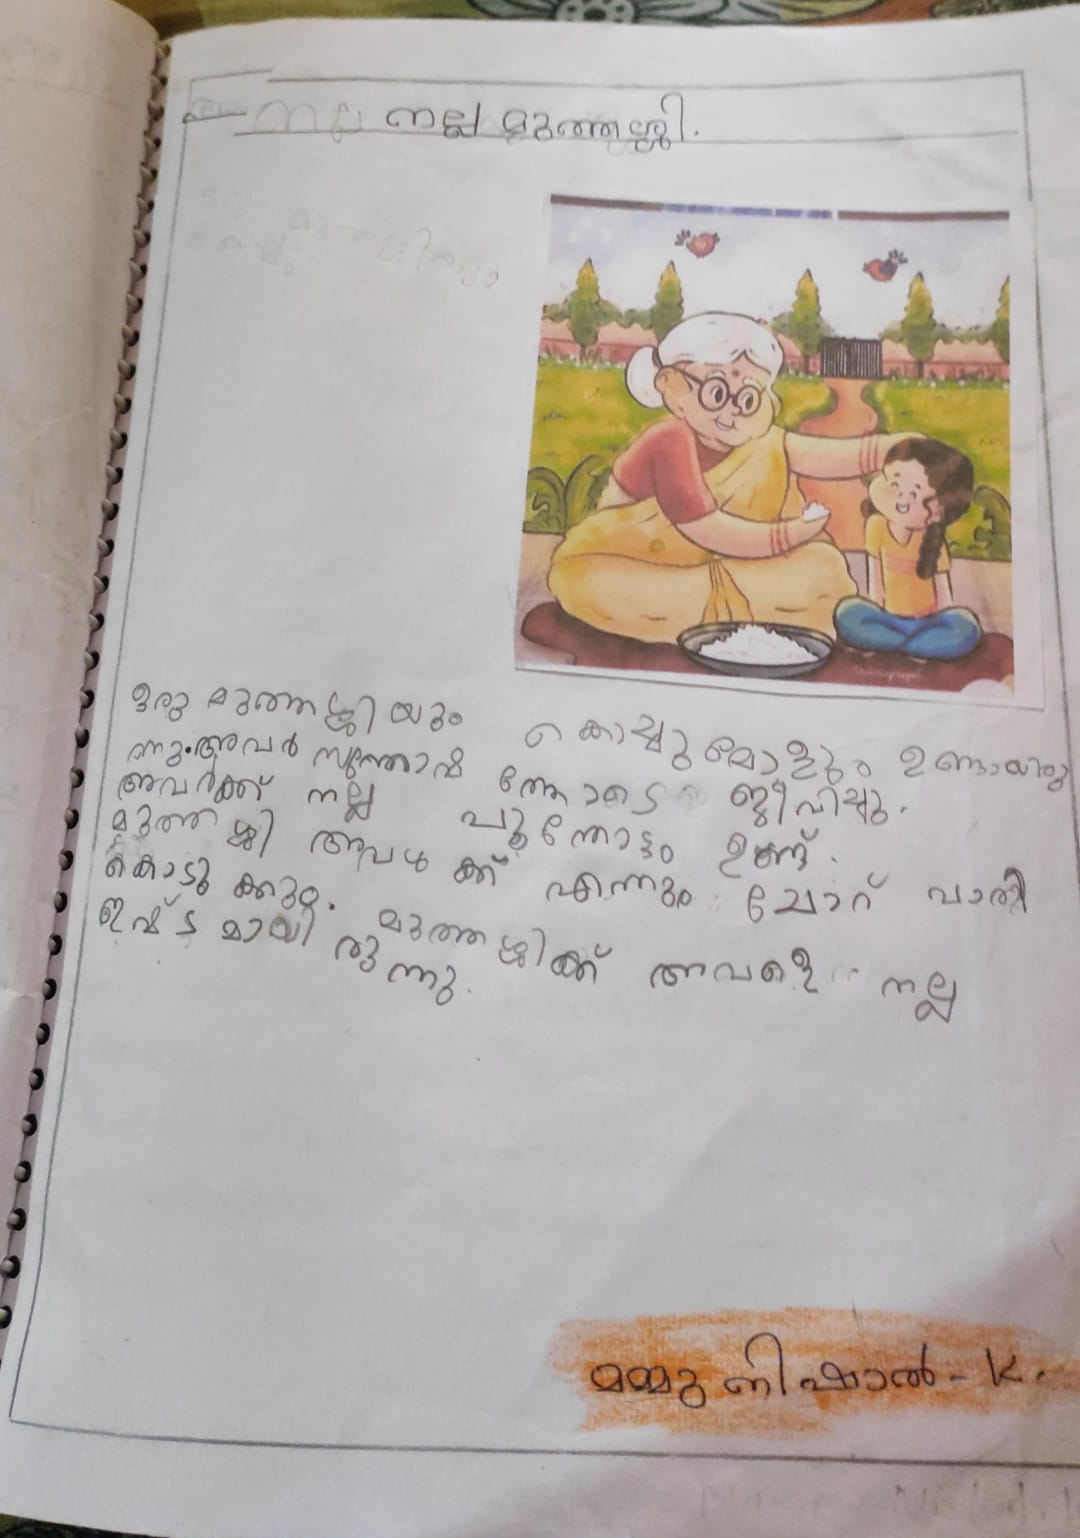 നല്ല മുത്തശ്ശി.
ഒരു മുത്തശ്ശിയും കൊച്ചുമോളും ഉണ്ടായിരു
ന്നു. അവർ സന്തോഷത്തോടെ ജീവിച്ചു.
അവർക്ക് നല്ല പൂന്തോട്ടം ഉണ്ട്.
മുത്തശ്ശി അവൾക്ക് എന്നും ചോറ് വാരി
കൊടുക്കും. മുത്തശ്ശിക്ക് അവളെ നല്ല
ഇഷ്ടമായിരുന്നു.
മമ്മു നിഷാൽ - K.